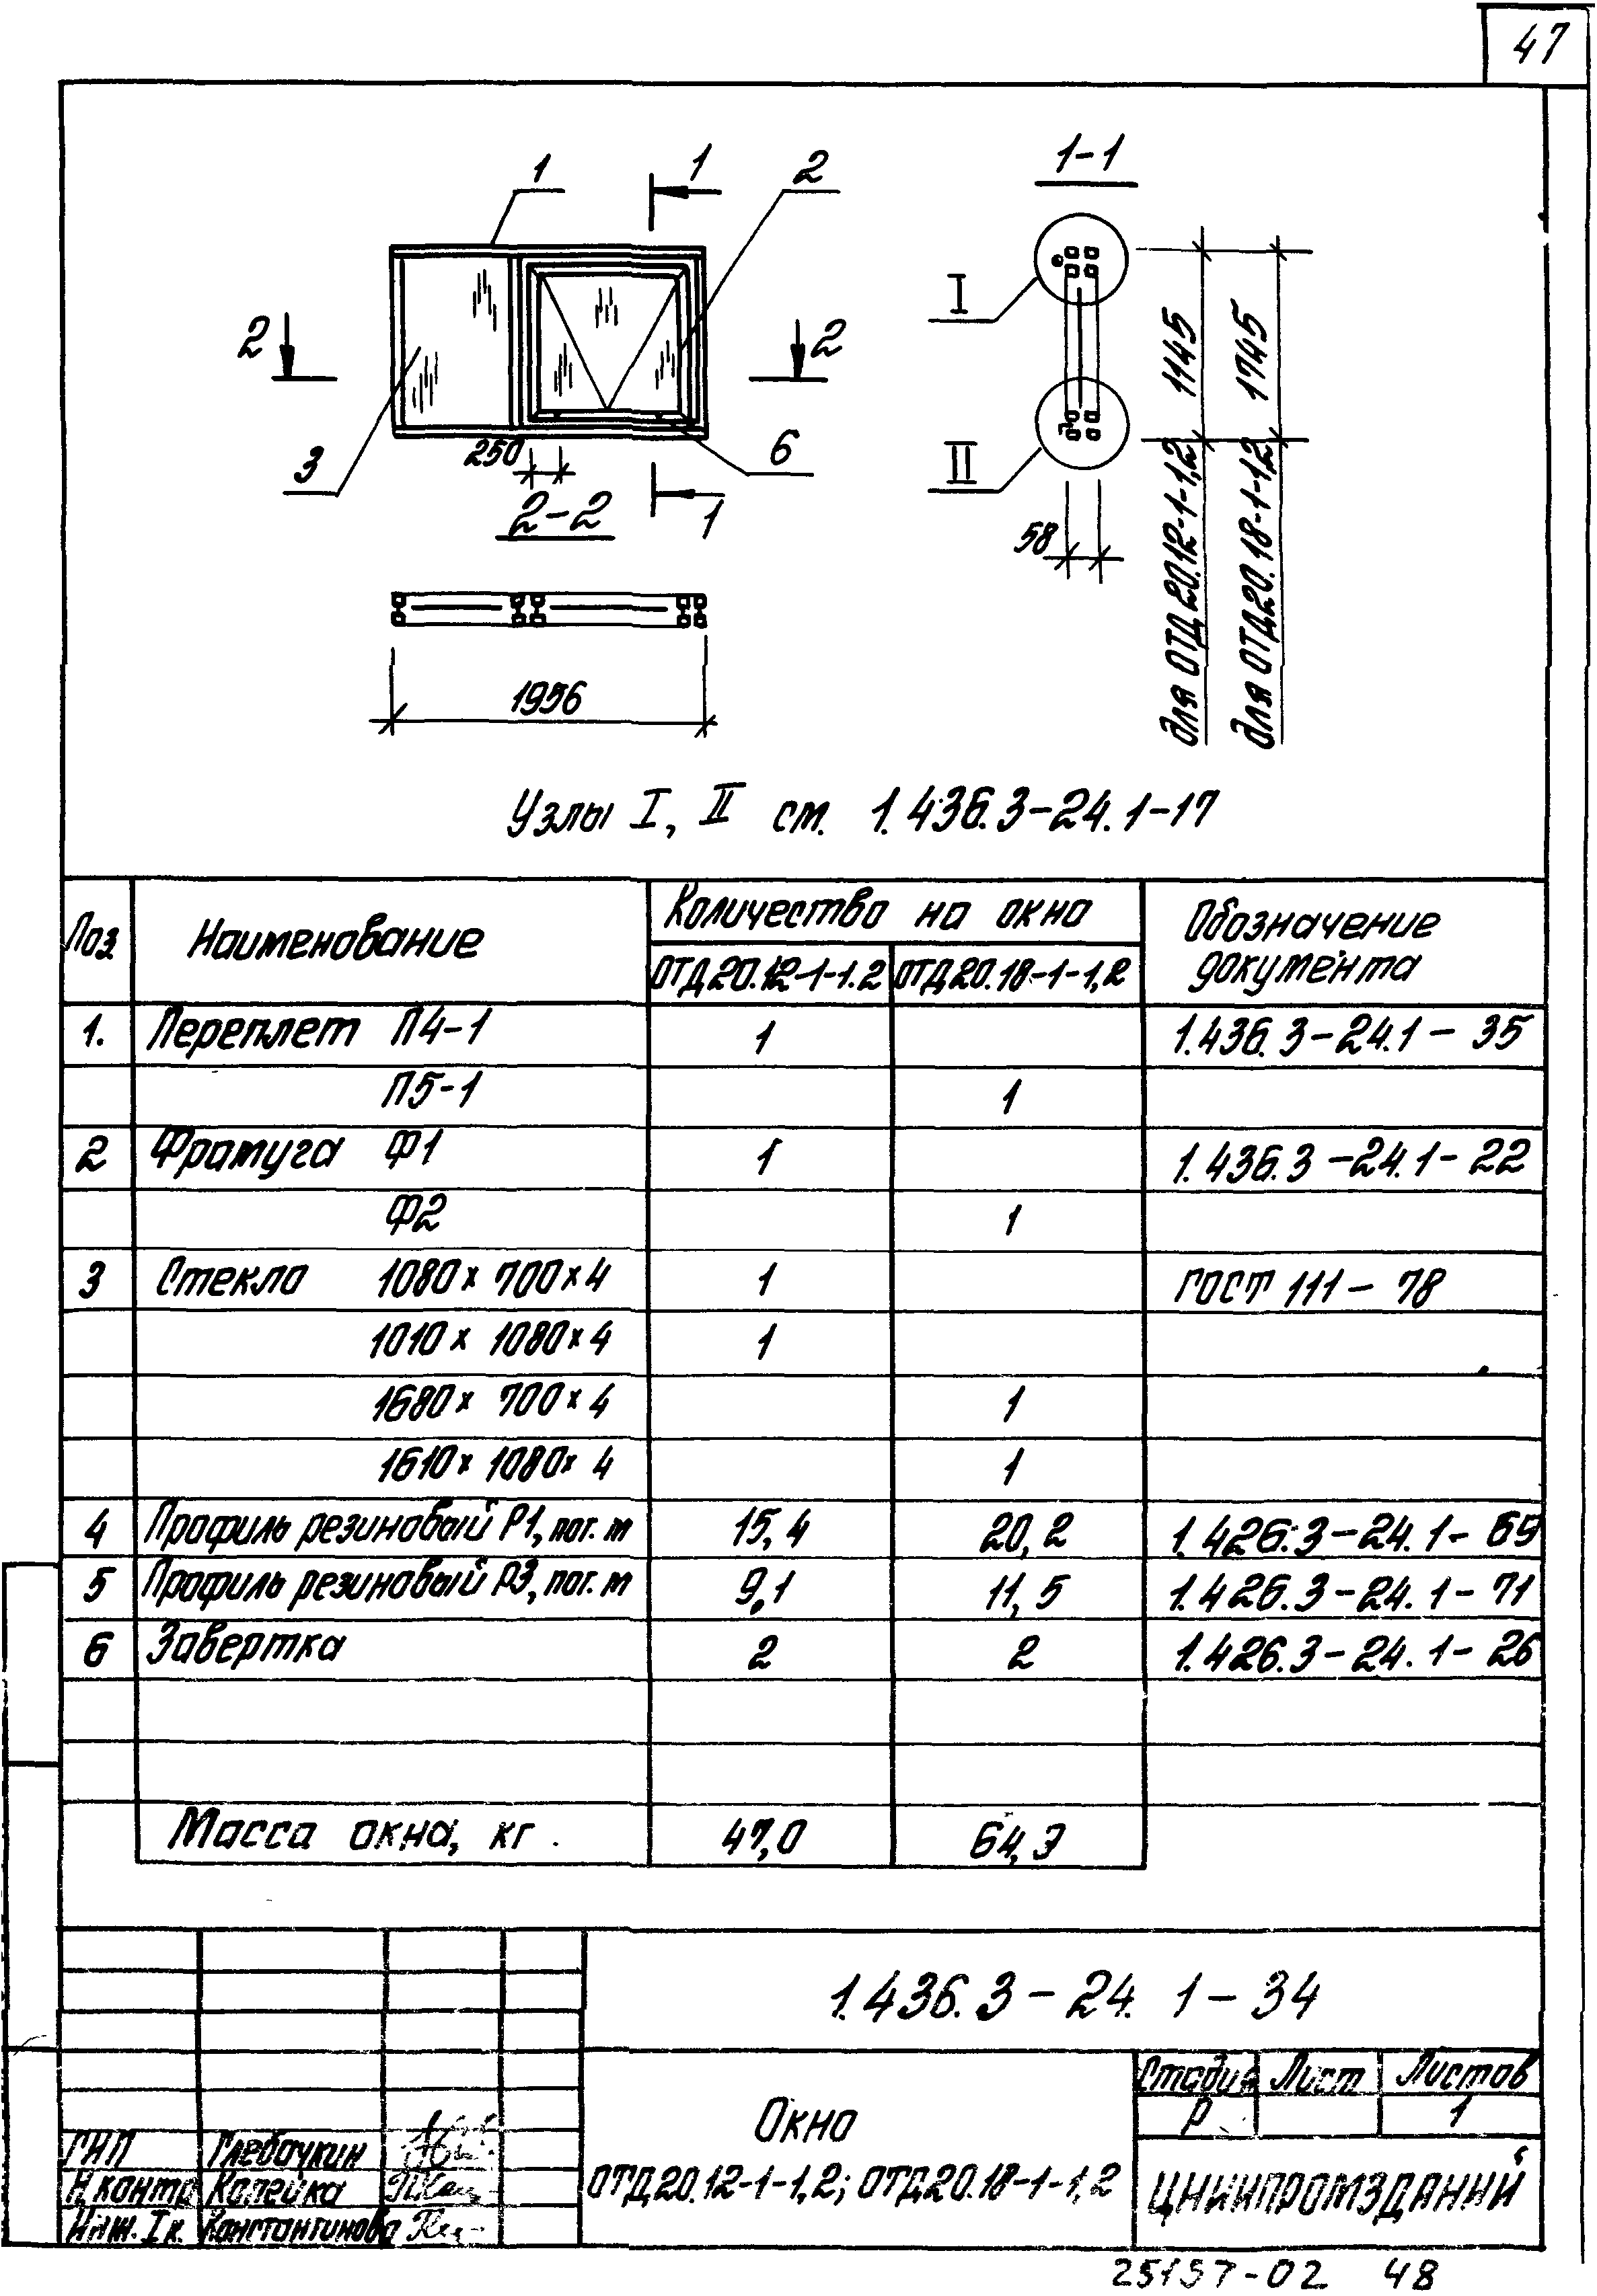 47
1
1
2
1-1
I
2
2
3
250
6
1
II
2-2
58
1145
1745
для ОТД20.12-1-1,2
для ОТД20.18-1-1,2
1956
Узлы I, II см. 1.436.3-24.1-17
Поз Наименование Количество на окно Обозначение документа
ОТД20.12-1-1.2 ОТД20.18-1-1,2
1. Переплет П4-1 1 1.436.3-24.1-35
П5-1 1
2 Фрамуга Ф1 1 1.436.3-24.1-22
Ф2 1
3 Стекло 1080х700х4 1 ГОСТ 111-78
1010х1080х4 1
1680х700х4 1
1610х1080х4 1
4 Профиль резиновый Р1, пог. м 15,4 20,2 1.426.3-24.1-69
5 Профиль резиновый Р3, пог. м 9,1 11,5 1.426.3-24.1-71
6 Завертка 2 2 1.426.3-24.1-26
Масса окна, кг. 47,0 64,3
1.436.3-24.1-34
Окно
ОТД20.12-1-1,2; ОТД20.18-1-1,2
Стадия Лист Листов
Р 1
ЦНИИПРОМЗДАНИЙ
ГИП Глебачкин
Н.контр Копейка
Инж. I к. Константинова
25157-02 48